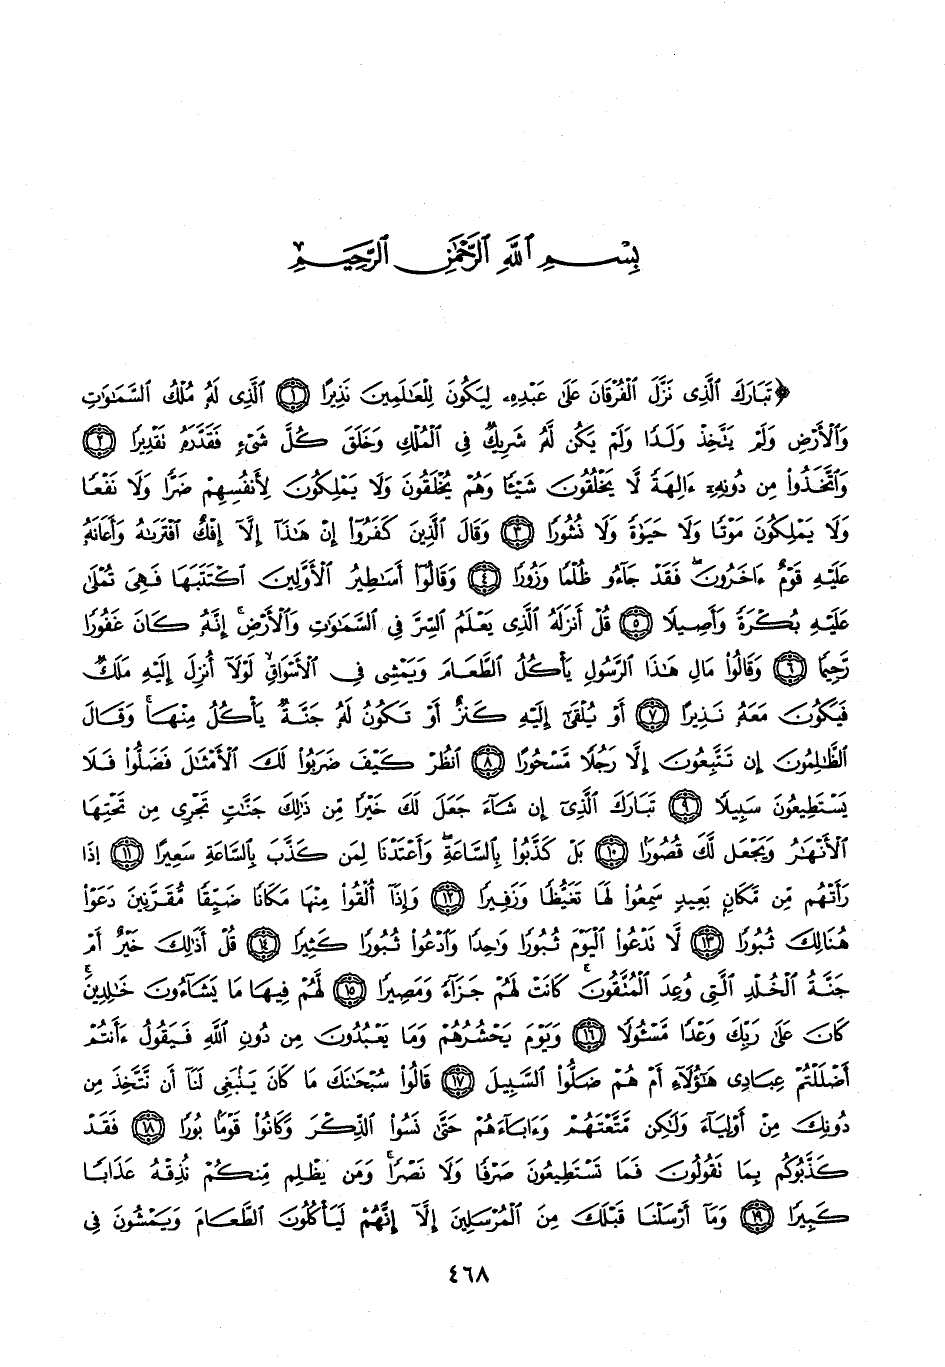 بِسْمِ ٱللَّهِ ٱلرَّحْمَٰنِ ٱلرَّحِيمِ
﴿تَبَارَكَ ٱلَّذِى نَزَّلَ ٱلْفُرْقَانَ عَلَىٰ عَبْدِهِۦ لِيَكُونَ لِلْعَٰلَمِينَ نَذِيرًا ١ ٱلَّذِى لَهُۥ مُلْكُ ٱلسَّمَٰوَٰتِ
وَٱلْأَرْضِ وَلَمْ يَتَّخِذْ وَلَدًا وَلَمْ يَكُن لَّهُۥ شَرِيكٌ فِى ٱلْمُلْكِ وَخَلَقَ كُلَّ شَىْءٍ فَقَدَّرَهُۥ تَقْدِيرًا ٢
وَٱتَّخَذُوا۟ مِن دُونِهِۦٓ ءَالِهَةً لَّا يَخْلُقُونَ شَيْـًٔا وَهُمْ يُخْلَقُونَ وَلَا يَمْلِكُونَ لِأَنفُسِهِمْ ضَرًّا وَلَا نَفْعًا
وَلَا يَمْلِكُونَ مَوْتًا وَلَا حَيَوٰةً وَلَا نُشُورًا ٣ وَقَالَ ٱلَّذِينَ كَفَرُوٓا۟ إِنْ هَٰذَآ إِلَّآ إِفْكٌ ٱفْتَرَىٰهُ وَأَعَانَهُۥ
عَلَيْهِ قَوْمٌ ءَاخَرُونَ ۖ فَقَدْ جَآءُو ظُلْمًا وَزُورًا ٤ وَقَالُوٓا۟ أَسَٰطِيرُ ٱلْأَوَّلِينَ ٱكْتَتَبَهَا فَهِىَ تُمْلَىٰ
عَلَيْهِ بُكْرَةً وَأَصِيلًا ٥ قُلْ أَنزَلَهُ ٱلَّذِى يَعْلَمُ ٱلسِّرَّ فِى ٱلسَّمَٰوَٰتِ وَٱلْأَرْضِ ۚ إِنَّهُۥ كَانَ غَفُورًا
رَّحِيمًا ٦ وَقَالُوا۟ مَالِ هَٰذَا ٱلرَّسُولِ يَأْكُلُ ٱلطَّعَامَ وَيَمْشِى فِى ٱلْأَسْوَاقِ ۙ لَوْلَآ أُنزِلَ إِلَيْهِ مَلَكٌ
فَيَكُونَ مَعَهُۥ نَذِيرًا ٧ أَوْ يُلْقَىٰٓ إِلَيْهِ كَنزٌ أَوْ تَكُونُ لَهُۥ جَنَّةٌ يَأْكُلُ مِنْهَا ۚ وَقَالَ
ٱلظَّٰلِمُونَ إِن تَتَّبِعُونَ إِلَّا رَجُلًا مَّسْحُورًا ٨ ٱنظُرْ كَيْفَ ضَرَبُوا۟ لَكَ ٱلْأَمْثَٰلَ فَضَلُّوا۟ فَلَا
يَسْتَطِيعُونَ سَبِيلًا ٩ تَبَارَكَ ٱلَّذِىٓ إِن شَآءَ جَعَلَ لَكَ خَيْرًا مِّن ذَٰلِكَ جَنَّٰتٍ تَجْرِى مِن تَحْتِهَا
ٱلْأَنْهَٰرُ وَيَجْعَل لَّكَ قُصُورًۢا ١٠ بَلْ كَذَّبُوا۟ بِٱلسَّاعَةِ ۖ وَأَعْتَدْنَا لِمَن كَذَّبَ بِٱلسَّاعَةِ سَعِيرًا ١١ إِذَا
رَأَتْهُم مِّن مَّكَانٍۭ بَعِيدٍ سَمِعُوا۟ لَهَا تَغَيُّظًا وَزَفِيرًا ١٢ وَإِذَآ أُلْقُوا۟ مِنْهَا مَكَانًا ضَيِّقًا مُّقَرَّنِينَ دَعَوْا۟
هُنَالِكَ ثُبُورًا ١٣ لَّا تَدْعُوا۟ ٱلْيَوْمَ ثُبُورًا وَٰحِدًا وَٱدْعُوا۟ ثُبُورًا كَثِيرًا ١٤ قُلْ أَذَٰلِكَ خَيْرٌ أَمْ
جَنَّةُ ٱلْخُلْدِ ٱلَّتِى وُعِدَ ٱلْمُتَّقُونَ ۚ كَانَتْ لَهُمْ جَزَآءً وَمَصِيرًا ١٥ لَّهُمْ فِيهَا مَا يَشَآءُونَ خَٰلِدِينَ ۚ
كَانَ عَلَىٰ رَبِّكَ وَعْدًا مَّسْـُٔولًا ١٦ وَيَوْمَ يَحْشُرُهُمْ وَمَا يَعْبُدُونَ مِن دُونِ ٱللَّهِ فَيَقُولُ ءَأَنتُمْ
أَضْلَلْتُمْ عِبَادِى هَٰٓؤُلَآءِ أَمْ هُمْ ضَلُّوا۟ ٱلسَّبِيلَ ١٧ قَالُوا۟ سُبْحَٰنَكَ مَا كَانَ يَنۢبَغِى لَنَآ أَن نَّتَّخِذَ مِن
دُونِكَ مِنْ أَوْلِيَآءَ وَلَٰكِن مَّتَّعْتَهُمْ وَءَابَآءَهُمْ حَتَّىٰ نَسُوا۟ ٱلذِّكْرَ وَكَانُوا۟ قَوْمًۢا بُورًا ١٨ فَقَدْ
كَذَّبُوكُم بِمَا تَقُولُونَ فَمَا تَسْتَطِيعُونَ صَرْفًا وَلَا نَصْرًا ۚ وَمَن يَظْلِم مِّنكُمْ نُذِقْهُ عَذَابًا
كَبِيرًا ١٩ وَمَآ أَرْسَلْنَا قَبْلَكَ مِنَ ٱلْمُرْسَلِينَ إِلَّآ إِنَّهُمْ لَيَأْكُلُونَ ٱلطَّعَامَ وَيَمْشُونَ فِى
٤٦٨